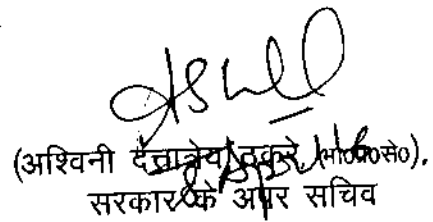 (अश्विनी दत्तात्रेय ठकरे, भा०प्र०से०),
सरकार के अपर सचिव